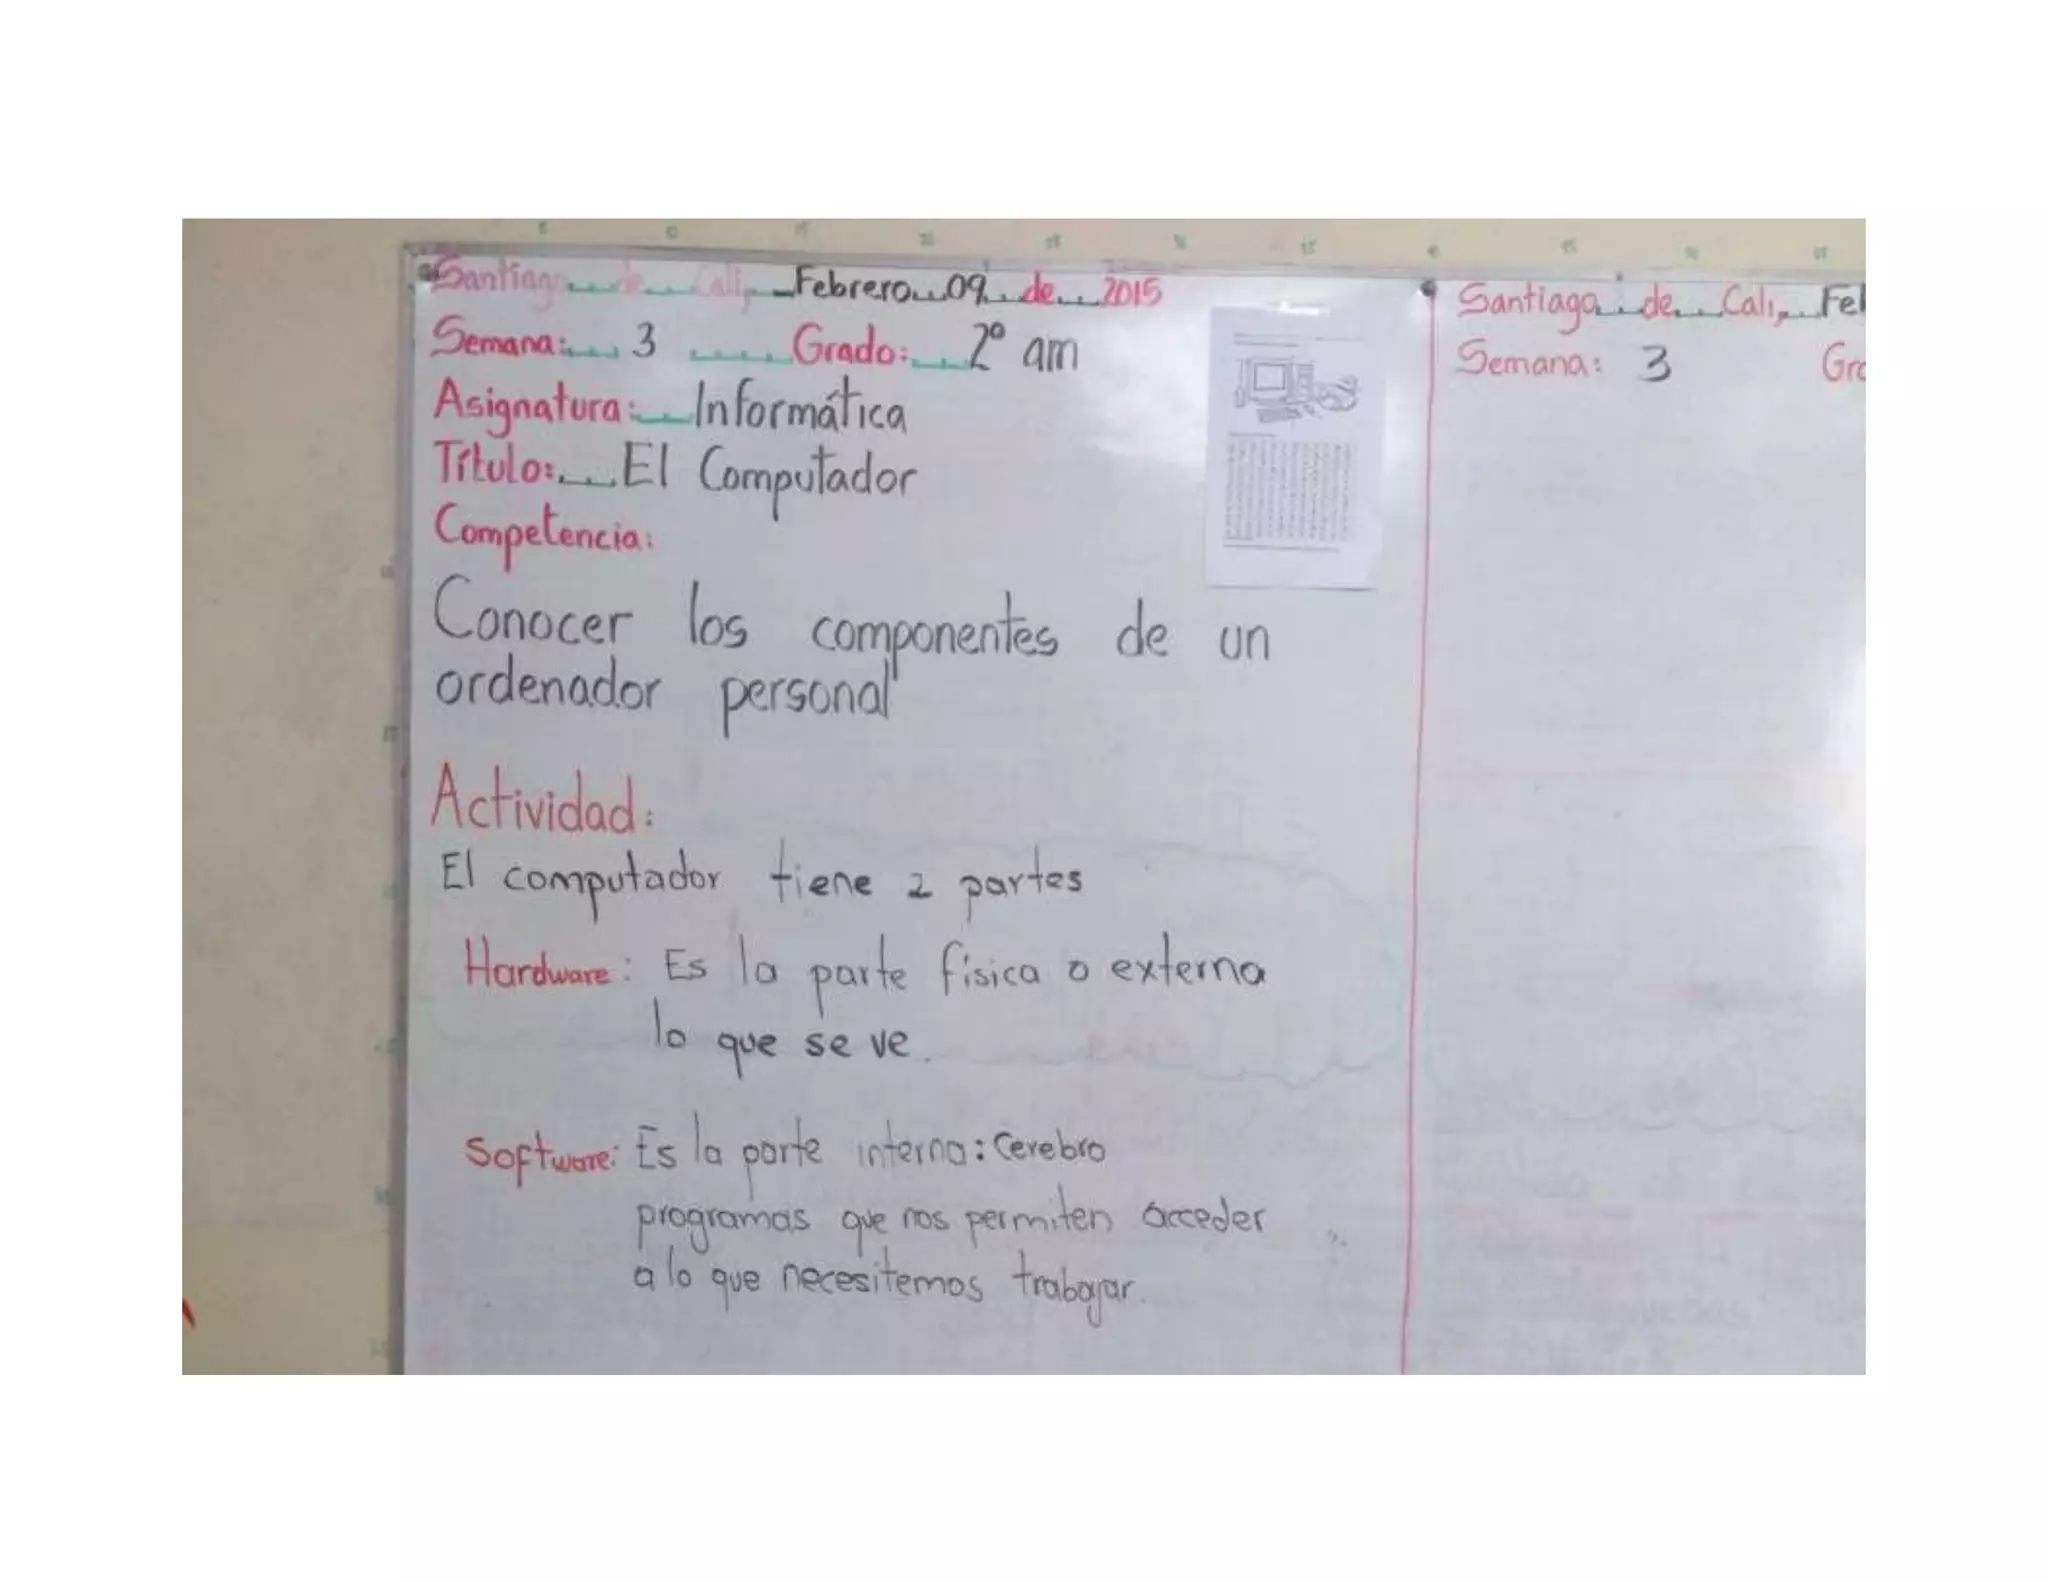 Santiago de Cali, Febrero 09 de 2015
Semana: 3 Grado: 2° am
Asignatura: Informática
Título: El Computador
Competencia:
Conocer los componentes de un
ordenador personal
Actividad:
El computador tiene 2 partes
Hardware: Es la parte física o externa
lo que se ve.
Software: Es la parte interna: Cerebro
programas que nos permiten acceder
a lo que necesitemos trabajar.
Santiago de Cali, Feb
Semana: 3 Gra